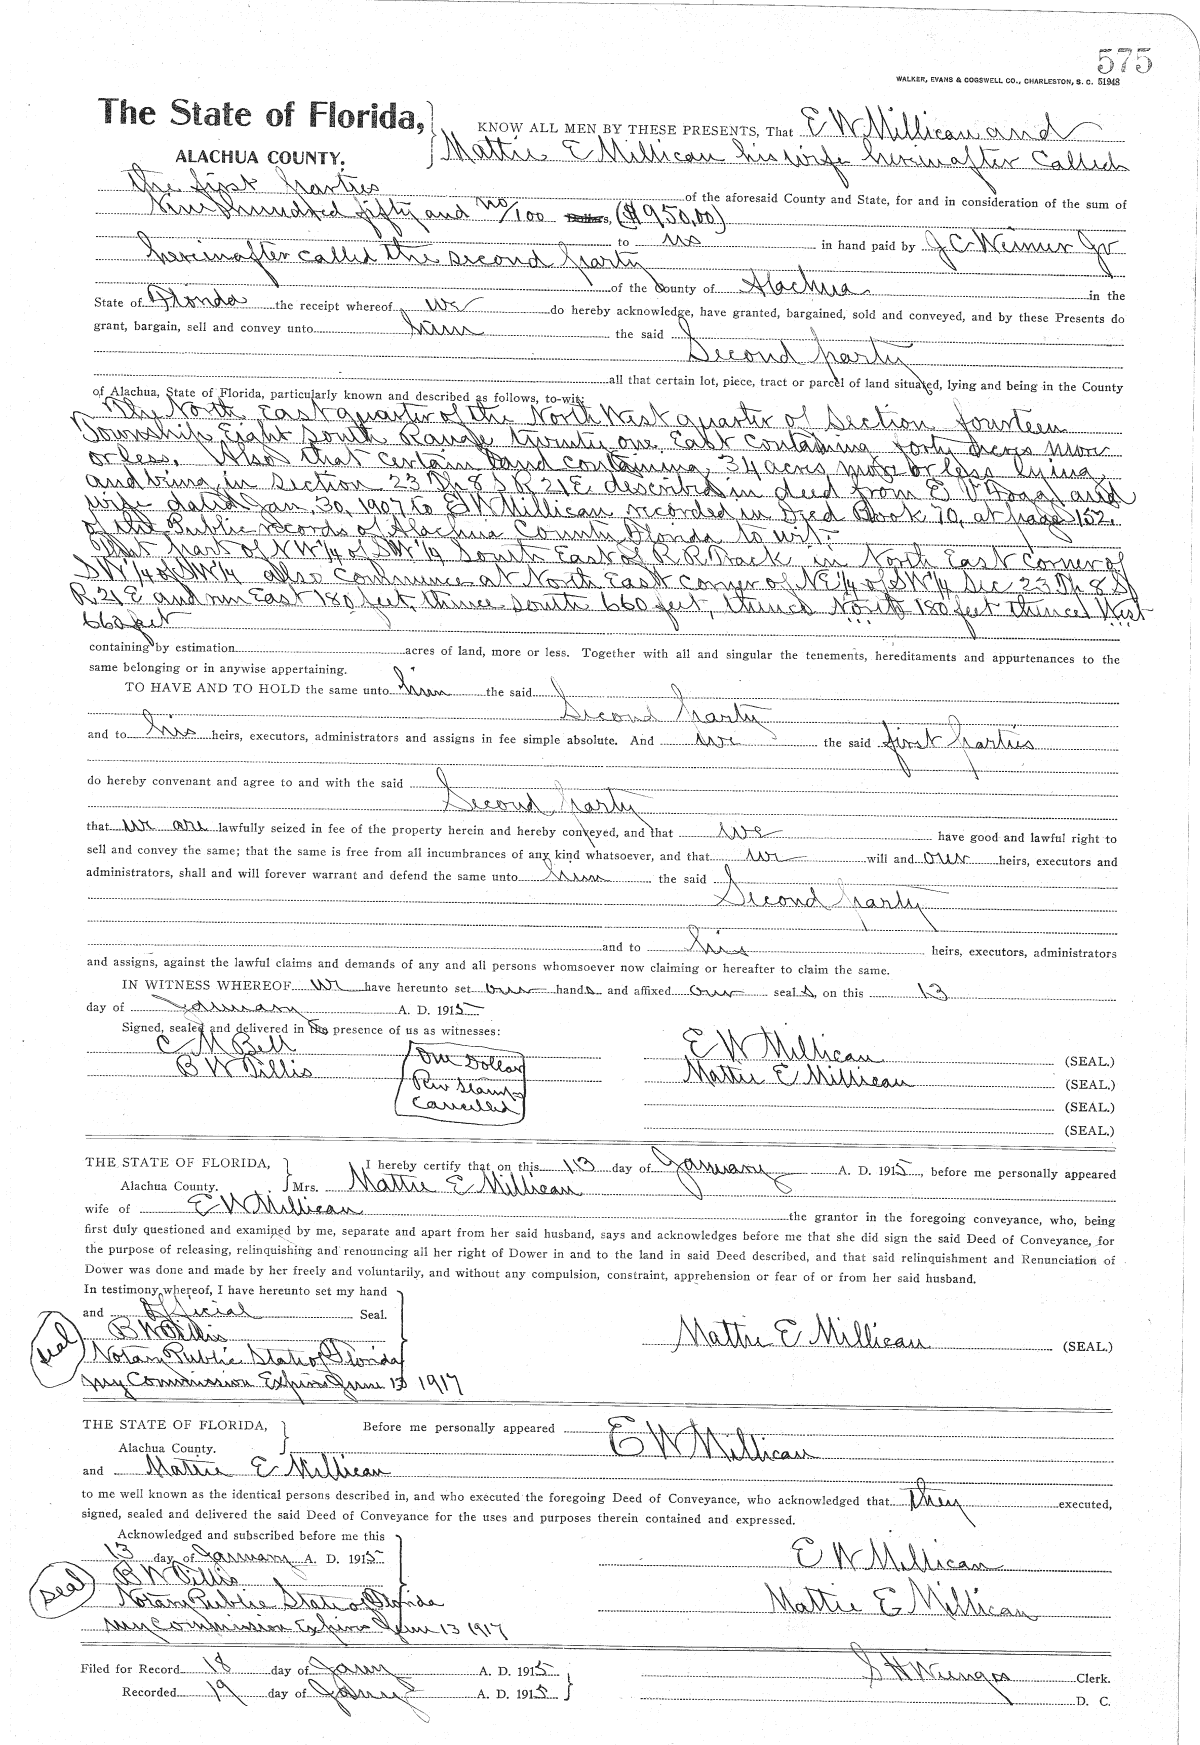 575
WALKER, EVANS & COGSWELL CO., CHARLESTON, S. C. 51948
The State of Florida,
ALACHUA COUNTY.
KNOW ALL MEN BY THESE PRESENTS, That E W Millican and
Mattie E Millican his wife hereinafter Called
the first parties
of the aforesaid County and State, for and in consideration of the sum of
Nine hundred fifty and no/100 Dollars, ($950.00)
to us in hand paid by J C Weimer Jr
hereinafter called the second party
of the County of Alachua in the
State of Florida the receipt whereof we do hereby acknowledge, have granted, bargained, sold and conveyed, and by these Presents do
grant, bargain, sell and convey unto him the said Second party
all that certain lot, piece, tract or parcel of land situated, lying and being in the County
of Alachua, State of Florida, particularly known and described as follows, to-wit:
The North East quarter of the North West quarter of Section fourteen
Township Eight South Range twenty one East containing forty acres more
or less. Also that certain land containing 34 acres more or less lying
and being in section 23 Tp 8 S R 21 E described in deed from E V and
wife dated Jan. 30, 1907 to E W Millican recorded in Deed Book 70, at page 152.
of the Public records of Alachua County Florida to wit:
That part of NW1/4 of SW1/4 South East of R.R. Track in North East corner of
SW1/4 of SW1/4 also Commence at North East corner of NE1/4 of SW1/4 Sec 23 Tp 8 S
R. 21 E and run East 180 feet, thence south 660 feet, thence North 180 feet thence West
660 feet
containing by estimation acres of land, more or less. Together with all and singular the tenements, hereditaments and appurtenances to the
same belonging or in anywise appertaining.
TO HAVE AND TO HOLD the same unto him the said Second party
and to his heirs, executors, administrators and assigns in fee simple absolute. And we the said first parties
do hereby convenant and agree to and with the said Second party
that we are lawfully seized in fee of the property herein and hereby conveyed, and that we have good and lawful right to
sell and convey the same; that the same is free from all incumbrances of any kind whatsoever, and that we will and our heirs, executors and
administrators, shall and will forever warrant and defend the same unto him the said Second party
and to his heirs, executors, administrators
and assigns, against the lawful claims and demands of any and all persons whomsoever now claiming or hereafter to claim the same.
IN WITNESS WHEREOF we have hereunto set our hands and affixed our seals, on this 13
day of January A. D. 1915
Signed, sealed and delivered in the presence of us as witnesses:
C M Bell
B W Tillis
One Dollar
Rev Stamps
Cancelled
E W Millican (SEAL.)
Mattie E Millican (SEAL.)
(SEAL.)
(SEAL.)
THE STATE OF FLORIDA,
Alachua County.
I hereby certify that on this 13 day of January A. D. 1915, before me personally appeared
Mrs. Mattie E Millican
wife of E W Millican the grantor in the foregoing conveyance, who, being
first duly questioned and examined by me, separate and apart from her said husband, says and acknowledges before me that she did sign the said Deed of Conveyance, for
the purpose of releasing, relinquishing and renouncing all her right of Dower in and to the land in said Deed described, and that said relinquishment and Renunciation of
Dower was done and made by her freely and voluntarily, and without any compulsion, constraint, apprehension or fear of or from her said husband.
In testimony whereof, I have hereunto set my hand
and official Seal.
B W Tillis
seal
Notary Public State of Florida
My Commission Expires June 13 1917
Mattie E Millican (SEAL.)
THE STATE OF FLORIDA,
Alachua County.
Before me personally appeared E W Millican
and Mattie E Millican
to me well known as the identical persons described in, and who executed the foregoing Deed of Conveyance, who acknowledged that they executed,
signed, sealed and delivered the said Deed of Conveyance for the uses and purposes therein contained and expressed.
Acknowledged and subscribed before me this
13 day of January A. D. 1915
B W Tillis
seal
Notary Public State of Florida
My Commission Expires June 13 1917
E W Millican
Mattie E Millican
Filed for Record 18 day of Jany A. D. 1915
Recorded 19 day of Jany A. D. 1915
S H Wienges Clerk.
D. C.